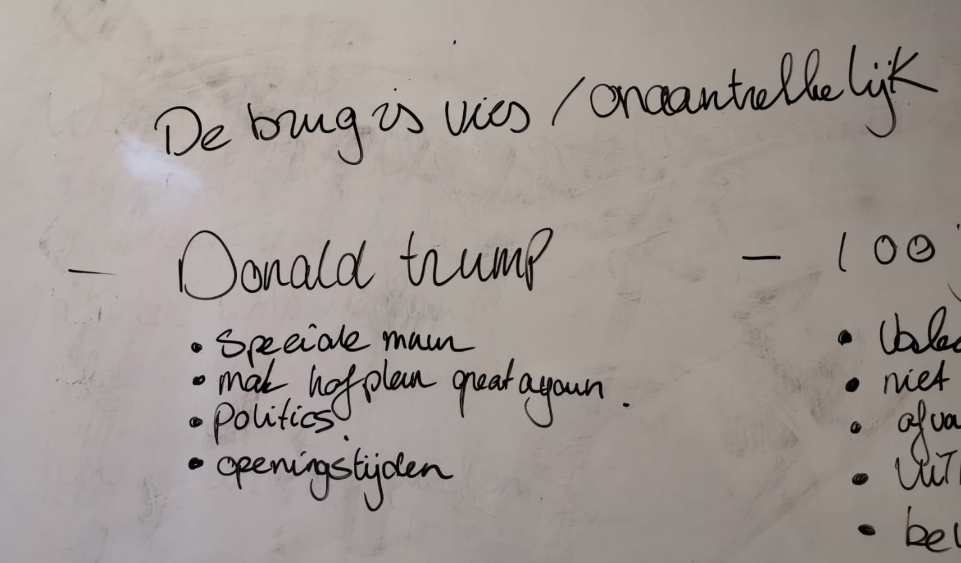 De brug is vies / onaantrekkelijk
- Donald trump
• Speciale muur
• mak hofplein great agoun.
• politics.
• openingstijden
- 100
• niet
• afva
• UiT
• bev